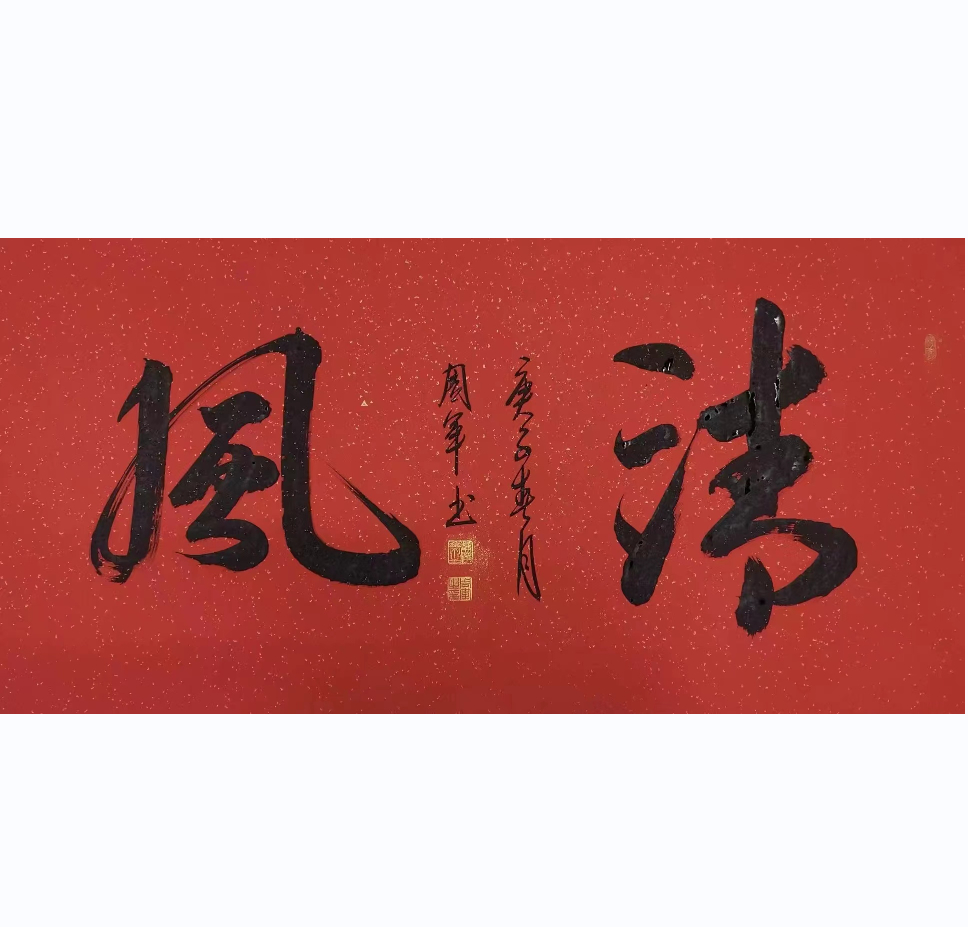 清風
庚子春月
周军书